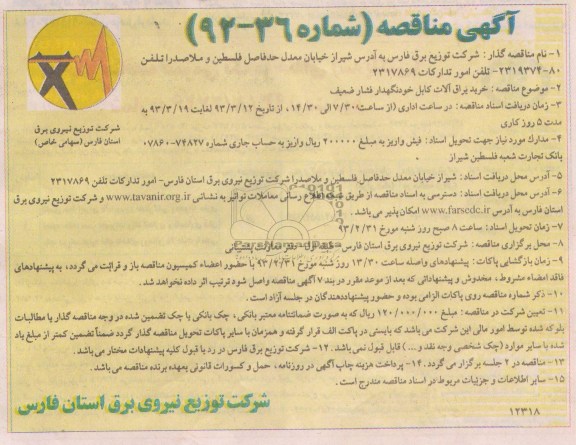 آگهی مناقصه (شماره ۳۶-۹۲)
۱- نام مناقصه گذار : شرکت توزیع برق فارس به آدرس شیراز خیابان معدل حدفاصل فلسطین و ملاصدرا تلفن
۸۰-۲۳۱۹۳۷۴- تلفن امور تدارکات ۲۳۱۷۸۶۹
۲- موضوع مناقصه : خرید یراق آلات کابل خودنگهدار فشار ضعیف
۳- زمان دریافت اسناد مناقصه : در ساعت اداری (از ساعت ۷/۳۰ الی ۱۴/۳۰، از تاریخ ۹۳/۳/۱۲ لغایت ۹۳/۳/۱۹ به
مدت ۵ روز کاری
۴- مدارک مورد نیاز جهت تحویل اسناد : فیش واریز به مبلغ ۲۰۰۰۰۰ ریال واریز به حساب جاری شماره ۷۴۸۲۷-۰۷۸۶۰
بانک تجارت شعبه فلسطین شیراز
شرکت توزیع نیروی برق
استان فارس (سهامی خاص)
۵- آدرس محل دریافت اسناد : شیراز خیابان معدل حدفاصل فلسطین و ملاصدرا شرکت توزیع نیروی برق استان فارس- امور تدارکات تلفن ۲۳۱۷۸۶۹
۶- آدرس محل دریافت اسناد : دسترسی به اسناد مناقصه از طریق شبکه اطلاع رسانی معاملات توانیر به نشانی www.tavanir.org.ir و شرکت توزیع نیروی برق
استان فارس به آدرس www.farsedc.ir امکان پذیر می باشد .
۷- زمان تحویل اسناد : ساعت ۸ صبح روز شنبه مورخ ۹۳/۲/۳۱
۸- محل برگزاری مناقصه : شرکت توزیع نیروی برق استان فارس
۹- زمان بازگشایی پاکات : پیشنهادهای واصله ساعت ۱۳/۳۰ روز شنبه مورخ ۹۳/۲/۳۱ با حضور اعضاء کمیسیون مناقصه باز و قرائت می گردد، به پیشنهادهای
فاقد امضاء مشروط، مخدوش و پیشنهاداتی که بعد از موعد مقرر در بند ۷ آگهی مناقصه واصل شود ترتیب اثر داده نخواهد شد.
۱۰- ذکر شماره مناقصه روی پاکات الزامی بوده و حضور پیشنهاددهندگان در جلسه آزاد است .
۱۱- تعیین شرکت در مناقصه : مبلغ ۱۲۰/۰۰۰/۰۰۰ ریال که به صورت ضمانتنامه معتبر بانکی، چک بانکی یا چک تضمین شده در وجه مناقصه گذار یا مطالبات
بلوکه شده توسط امور مالی این شرکت می باشد که بایستی در پاکت الف قرار گرفته و همزمان با سایر پاکات تحویل مناقصه گذار گردد ضمناً تضمین کمتر از مبلغ یاد
شده یا سایر موارد (چک شخصی وجه نقد و ... ) قابل قبول نمی باشد . ۱۲- شرکت توزیع برق فارس در رد یا قبول کلیه پیشنهادات مختار می باشد .
۱۳- مناقصه در ۲ جلسه برگزار می گردد . ۱۴- پرداخت هزینه چاپ آگهی در روزنامه، حمل و کسورات قانونی بعهده برنده مناقصه می باشد .
۱۵- سایر اطلاعات و جزئیات مربوط در اسناد مناقصه مندرج است .
شرکت توزیع نیروی برق استان فارس
۱۲۳۱۸